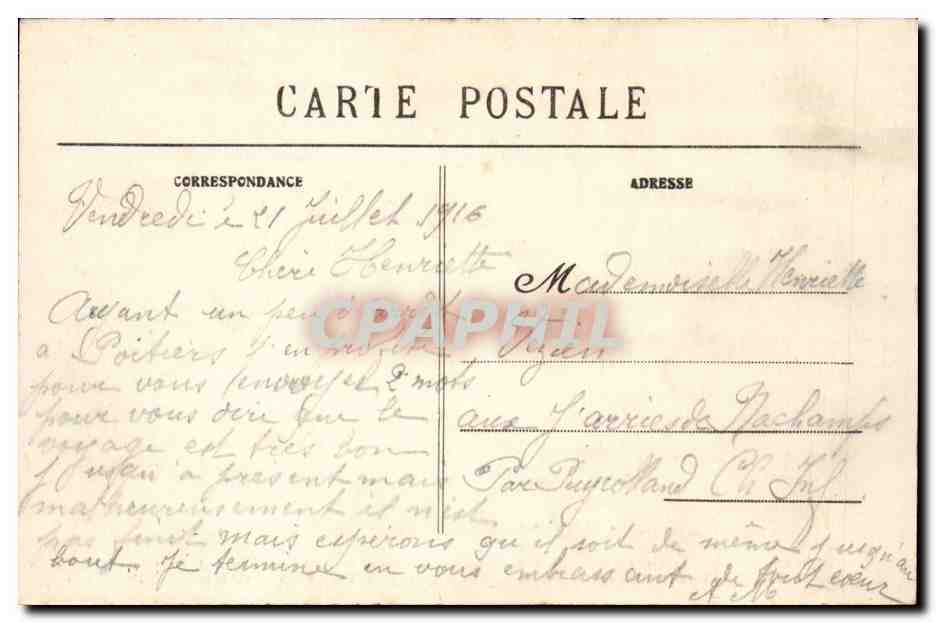 CARTE POSTALE
CORRESPONDANCE
Vendredi le 21 Juillet 1916
Chère Henriette
Ayant un peu d'arrêt
à Poitiers j'en profite
pour vous envoyer 2 mots
pour vous dire que le
voyage est très bon
jusqu'à présent mais
malheureusement il n'est
pas fini mais espérons qu'il soit de même jusqu'au
bout. Je termine en vous embrassant de tout cœur
A M
ADRESSE
Mademoiselle Henriette
aux Jarries de Nachamps
Par Puyrolland Ch Inf
CPAPHIL